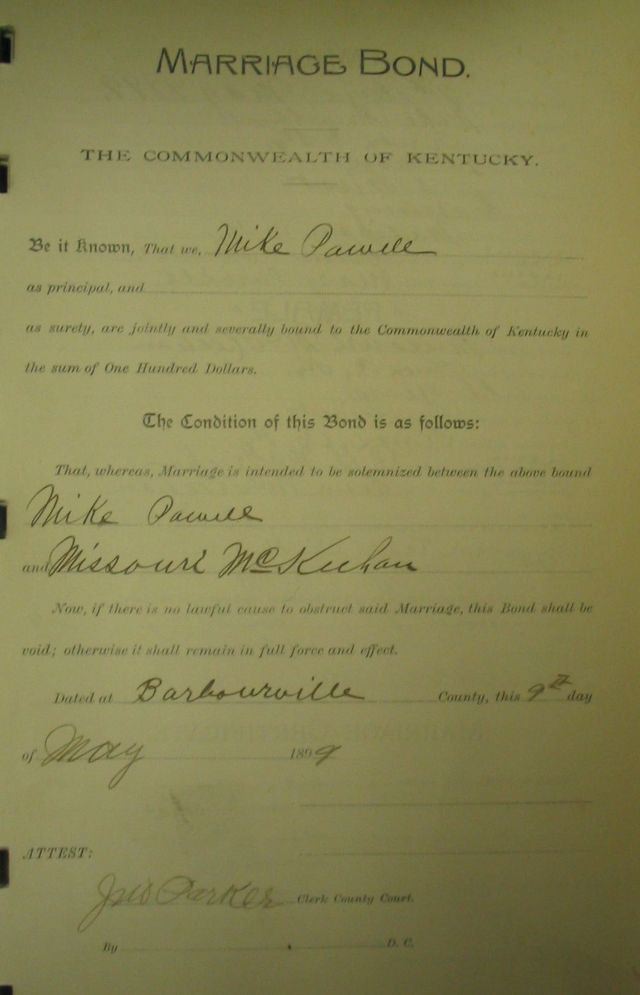 MARRIAGE BOND.
THE COMMONWEALTH OF KENTUCKY.
Be it Known, That we, Mike Powell
as principal, and
as surety, are jointly and severally bound to the Commonwealth of Kentucky in
the sum of One Hundred Dollars.
The Condition of this Bond is as follows:
That, whereas, Marriage is intended to be solemnized between the above bound
Mike Powell
and Missouri McKeehan
Now, if there is no lawful cause to obstruct said Marriage, this Bond shall be
void; otherwise it shall remain in full force and effect.
Dated at Barbourville County, this 9th day
of May 1899
ATTEST:
Jno Parker Clerk County Court.
By D. C.